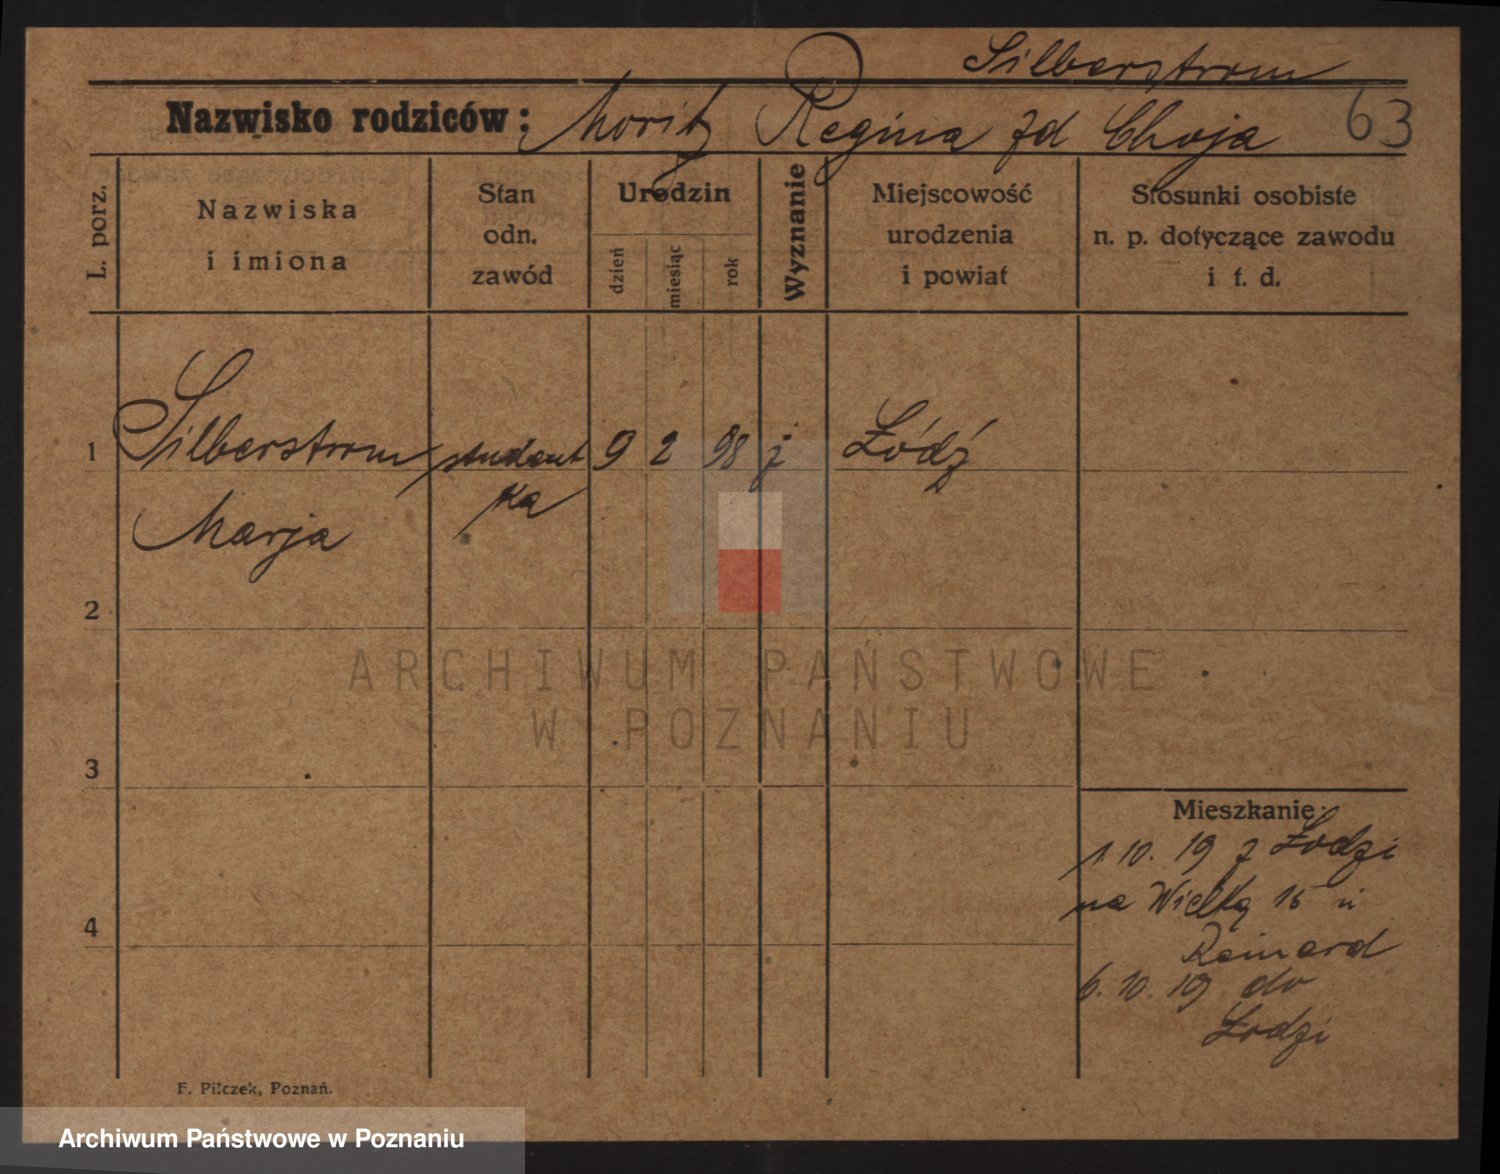 Silberstrom
Nazwisko rodziców: Moritz Regina zd Choja 63
L. porz.
Nazwiska
i imiona
Stan
odn.
zawód
Urodzin
dzień
miesiąc
rok
Wyznanie
Miejscowość
urodzenia
i powiat
Stosunki osobiste
n. p. dotyczące zawodu
i t. d.
1 Silberstrom student 9 2 98 ż Łódź
ka
Marja
2
ARCHIWUM PAŃSTWOWE
W POZNANIU
3
Mieszkanie:
1.10.19 z Łodzi
na Wielką 16 u
4
Reinard
6.10.19 do
Łodzi
F. Pilczek, Poznań.
Archiwum Państwowe w Poznaniu